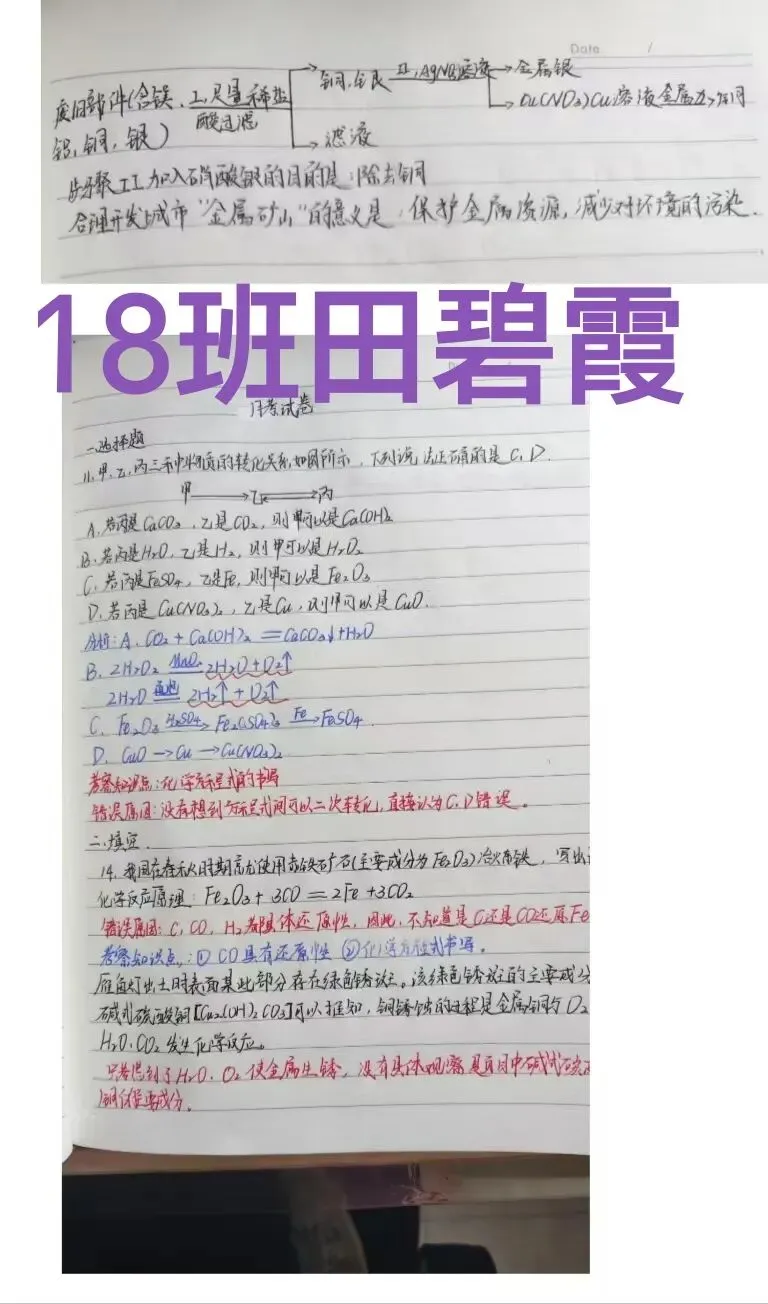 Date /
铜,银 II,AgNO3溶液 金属银
废旧部件(含镁、 I,足量稀盐
酸过滤 Cu(NO3)Cu溶液 金属 铜
铝,铜,银) 滤液
步骤II加入硝酸银的目的是:除去铜
合理开发城市“金属矿山”的意义是:保护金属资源,减少对环境的污染.
18班田碧霞
月考试卷
一.选择题
11.甲、乙、丙三种物质的转化关系如图所示,下列说法正确的是C、D.
甲 乙 丙
A.若丙是CaCO3,乙是CO2,则甲可以是Ca(OH)2
B.若丙是H2O,乙是H2,则甲可以是H2O2
C.若丙是FeSO4,乙是Fe,则甲可以是Fe2O3
D.若丙是Cu(NO3)2,乙是Cu,则甲可以是CuO.
分析:A.CO2+Ca(OH)2=CaCO3↓+H2O
B.2H2O2 MnO2 2H2O+O2↑
2H2O 通电 2H2↑+O2↑
C.Fe2O3 H2SO4→ Fe2(SO4)3 Fe→ FeSO4.
D.CuO→Cu→Cu(NO3)2
考察知识点:化学方程式的书写
错误原因:没有想到方程式间可以二次转化,直接认为C,D错误。
二.填空.
14.我国在春秋时期就使用赤铁矿石(主要成分为Fe2O3)冶炼铁,写出
化学反应原理:Fe2O3+3CO=2Fe+3CO2
错误原因:C,CO,H2都具体还原性,因此,不知道是C还是CO还原Fe
考察知识点:①CO具有还原性 ②化学方程式书写。
雁鱼灯出土时表面某些部分存在绿色锈斑。该绿色锈斑的主要成分
碱式硫酸铜[Cu2(OH)2CO3]可以推知,铜锈蚀的过程是金属铜与O2
H2O.CO2发生化学反应。
只考虑到了H2O、O2使金属生锈,没有具体观察题目中碱式
铜 主要成分。